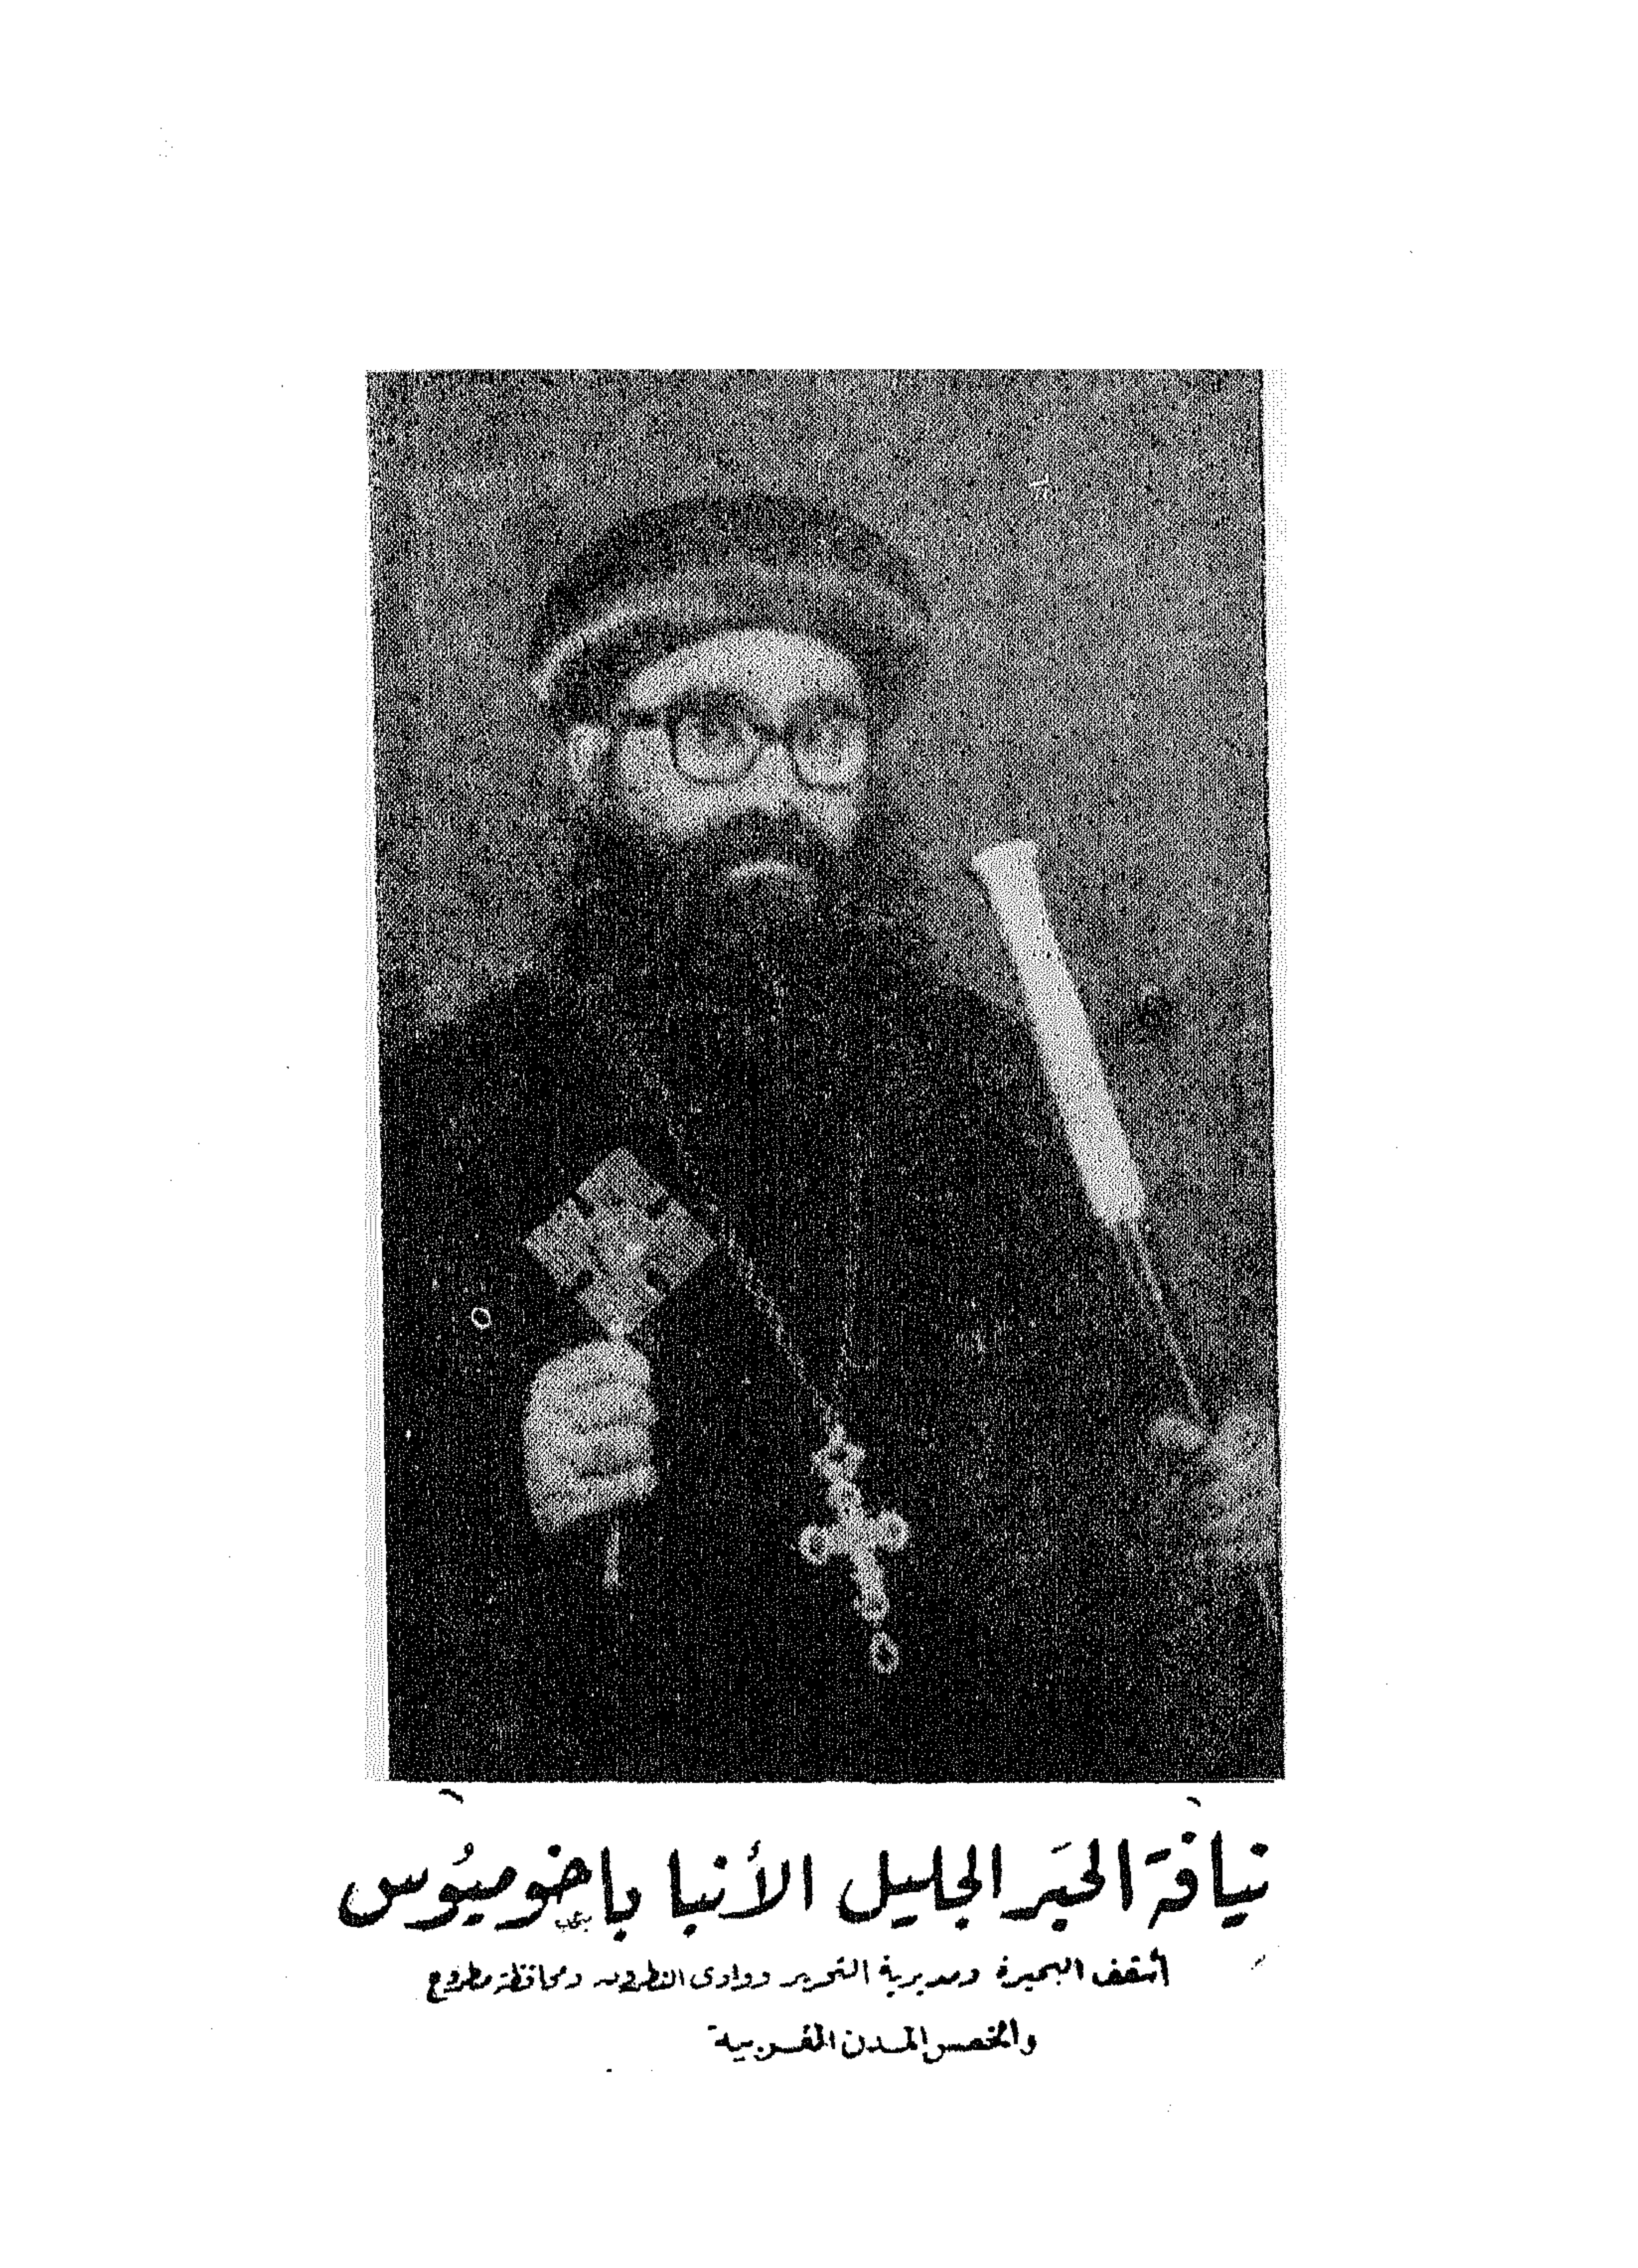 نيافة الحبر الجليل الأنبا باخوميوس
أسقف البحيرة ومديرية التحرير ووادى النطرون ومحافظة مطروح
والخمس المدن الغربية